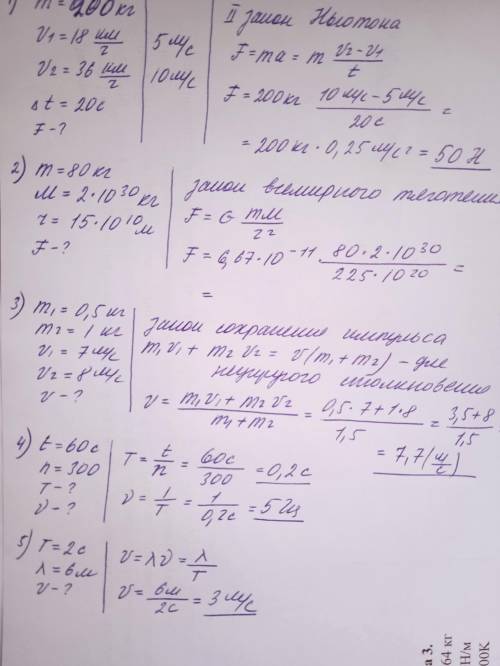 1) m = 200 кг
V1 = 18 км/ч | 5 м/с
V2 = 36 км/ч | 10 м/с
Δt = 20с
F - ?
II закон Ньютона
F = ma = m (V2 - V1)/t
F = 200кг (10м/с - 5м/с)/20с =
= 200кг · 0,25 м/с² = 50 Н
2) m = 80 кг
M = 2 · 10^30 кг
r = 15 · 10^10 м
F - ?
закон всемирного тяготения
F = G mM/r²
F = 6,67 · 10^-11 · (80 · 2 · 10^30)/(225 · 10^20) =
=
3) m1 = 0,5 кг
m2 = 1 кг
v1 = 7 м/с
v2 = 8 м/с
v - ?
закон сохранения импульса
m1v1 + m2v2 = v(m1 + m2) - для
неупругого столкновения
v = (m1v1 + m2v2)/(m1 + m2) = (0,5 · 7 + 1 · 8)/1,5 = (3,5 + 8)/1,5
= 7,7 (м/с)
4) t = 60с
n = 300
T - ?
ν - ?
T = t/n = 60с/300 = 0,2 с
ν = 1/T = 1/0,2с = 5 Гц
5) T = 2с
λ = 6м
v - ?
v = λν = λ/T
v = 6м/2с = 3 м/с
а 3.
64 кг
Н/м
00К